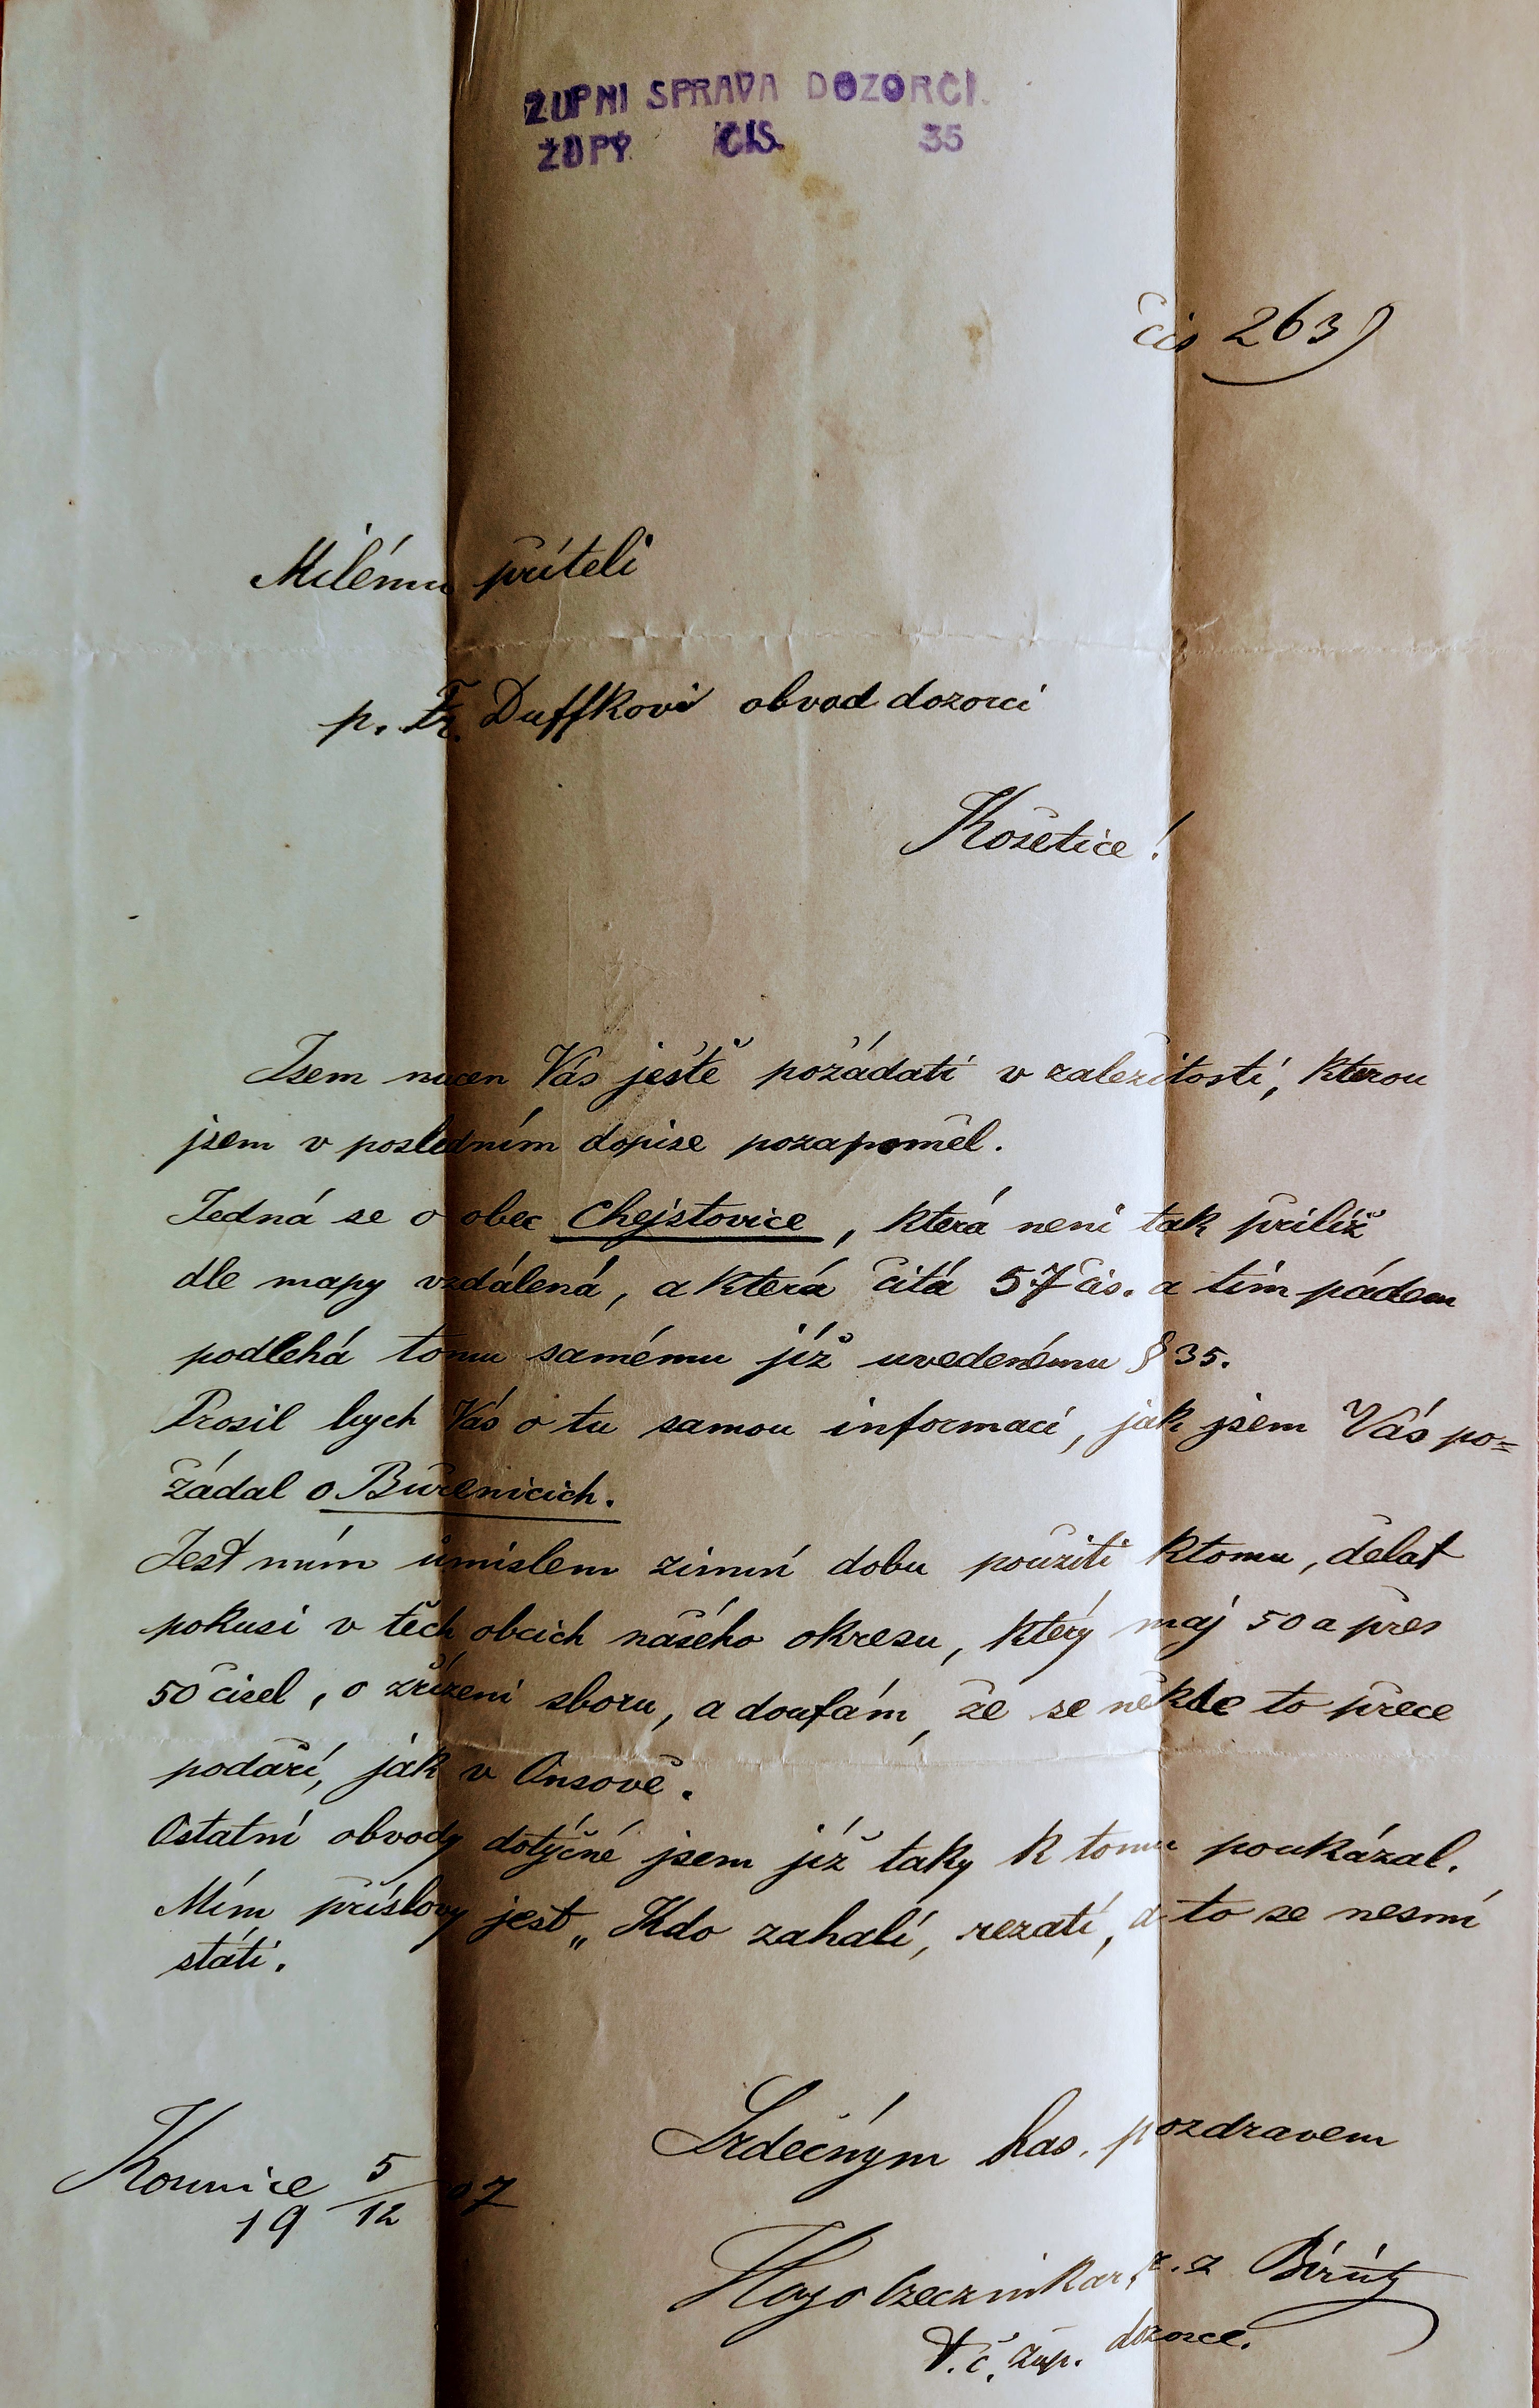 ŽUPNI SPRAVA DOZORČI.
ŽUPY. ČIS. 35
čis 263
Milému příteli
p. Fr. Duffkovi obvod dozorci
Košetice!
Jsem nucen Vás ještě požádati v zaležitosti, kterou
jsem v posledním dopise pozapoměl.
Jedná se o obec Chejstovice, která neni tak přilíž
dle mapy vzdálená, a která čitá 57 čis. a tim pádem
podlehá tomu samému již uvedenému § 35.
Prosil bych Vás o tu samou informaci, jak jsem Vás po=
žádal o Buřenicich.
Jest mím úmislem zimní dobu použiti ktomu, dělat
pokusi v těch obcich našeho okresu, který maj 50 a přes
50 čisel, o zřízeni sboru, a doufám, že se někde to přece
podaří, jak v Onsově.
Ostatní obvody dotýčné jsem již taky k tomu poukázal.
Mím příslovy jest „Kdo zahalí, rezatí, a to se nesmí
státi.
Srdečným has. pozdravem
Kounice 5/12 1907
t. č. žup. dozorce.